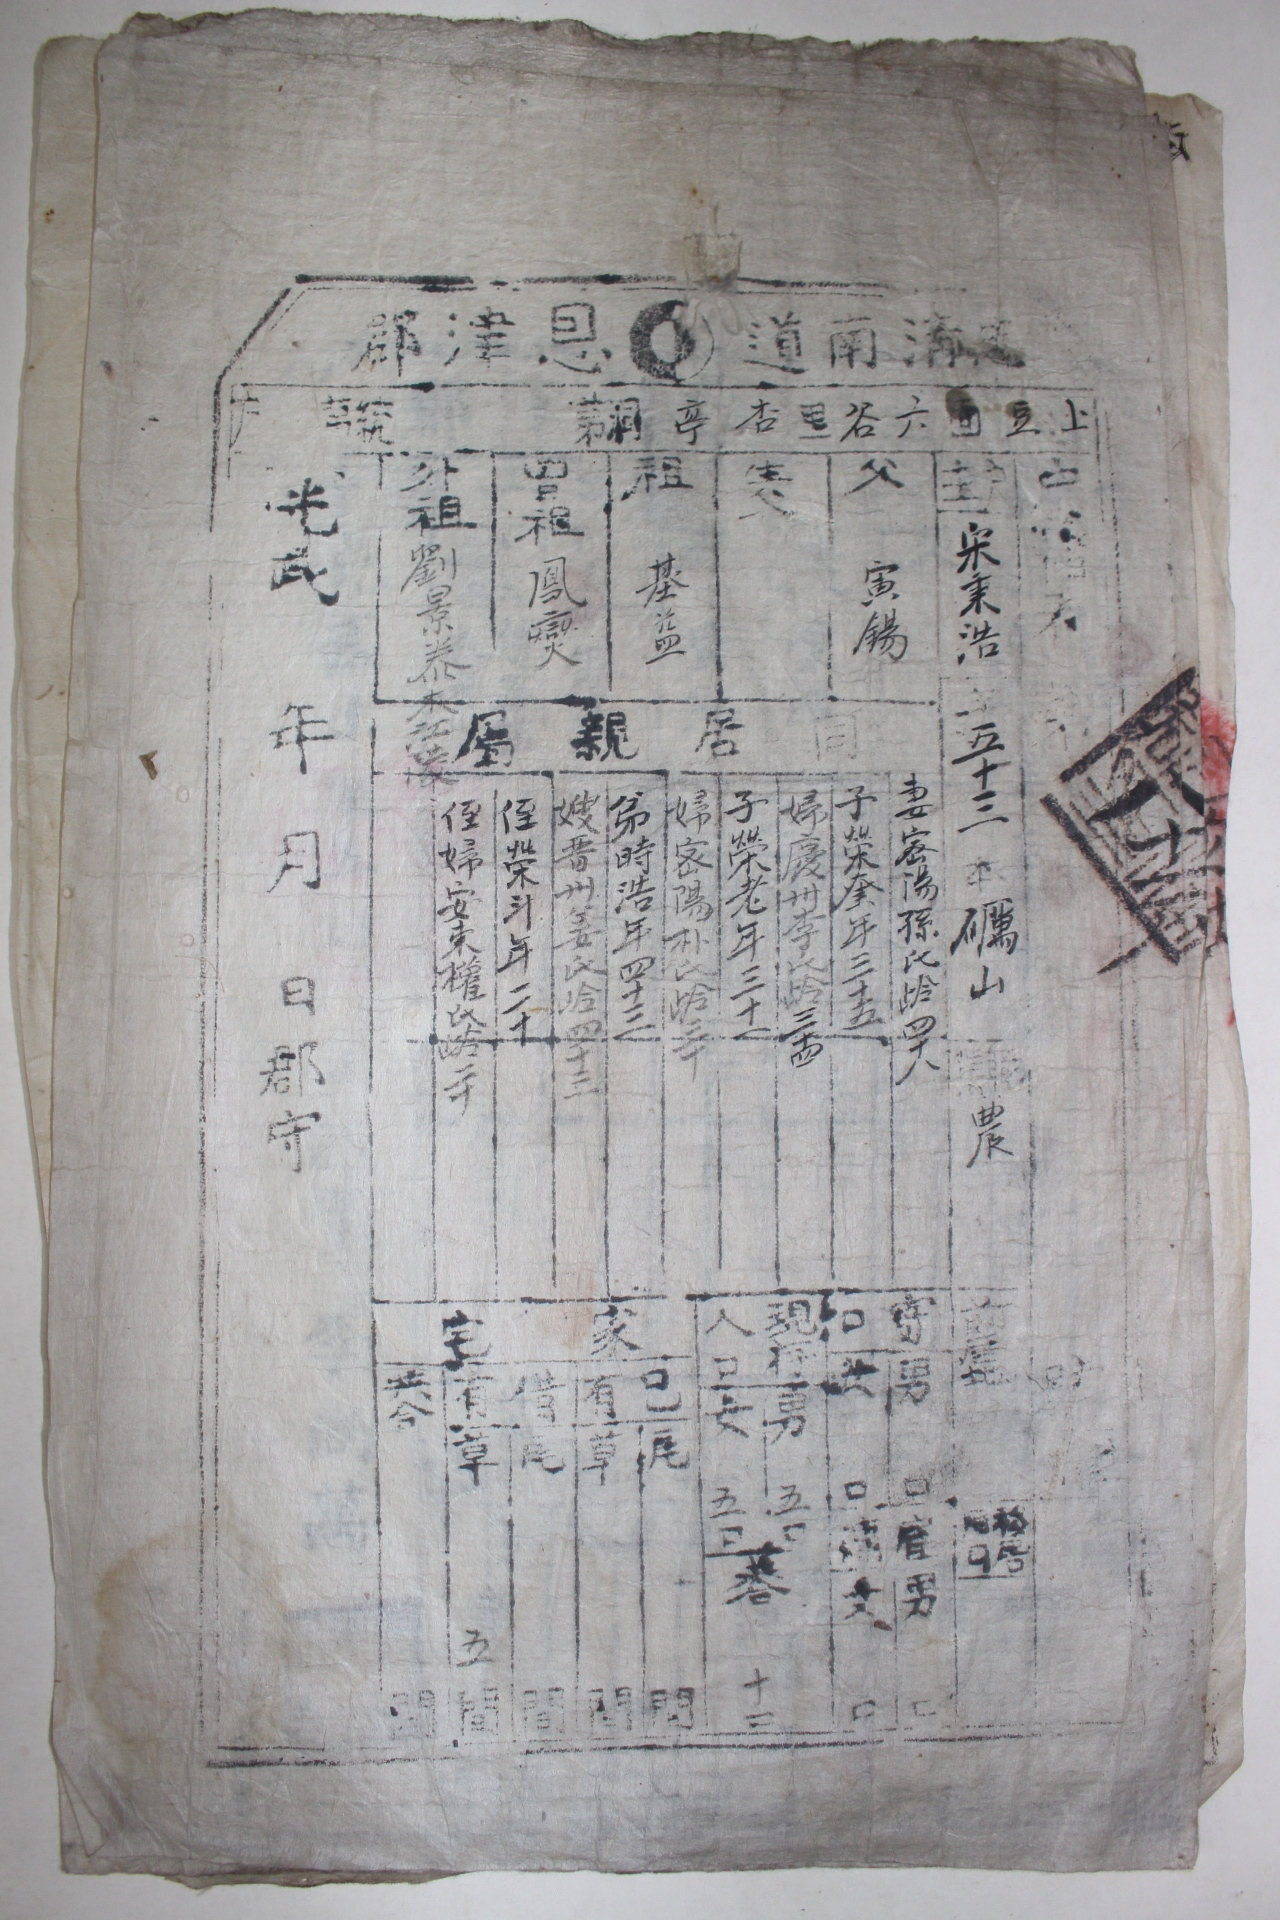 忠淸南道 恩津郡
上豆面六谷里杏亭洞 第 號 戶
戶主 宋秉浩 年五十三 本礪山 職業農 前居地 移居
父 寅錫
生父
祖 基益
曾祖 鳳燮
外祖 劉景泰 本江陵
同居親屬
妻密陽孫氏齡四十八
子榮奎年三十五
婦慶州李氏齡三十四
子榮老年三十一
婦密陽朴氏齡三十
弟時浩年四十三
嫂晋州姜氏齡四十三
侄榮斗年二十
侄婦安東權氏齡二十
寄口 男 口 雇 男 口
女 口 女 口
現存人口 男 五口 女 五口 共合 十口
家宅
己有 瓦 間
草 間
借有 瓦 間
草 五間
共合 間
光武 年 月 日 郡守